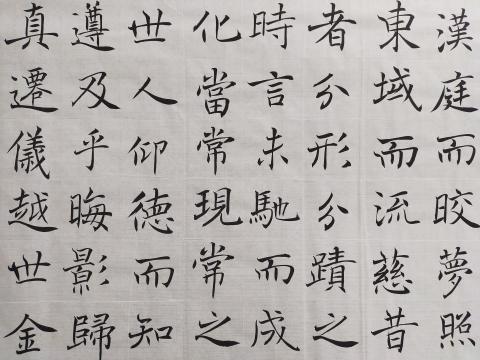 漢庭而皎夢照
東域而流慈昔
者分形分蹟之
時言未馳而成
化當常現常之
世人仰德而知
遵及乎晦影歸
真遷儀越世金